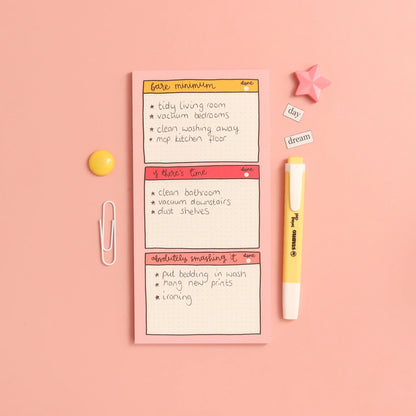 bare minimum done
★ tidy living room
★ vacuum bedrooms
★ clean washing away
★ mop kitchen floor
if there's time done
★ clean bathroom
★ vacuum downstairs
★ dust shelves
absolutely smashing it done
★ put bedding in wash
★ hang new prints
★ ironing
day
dream
STABILO